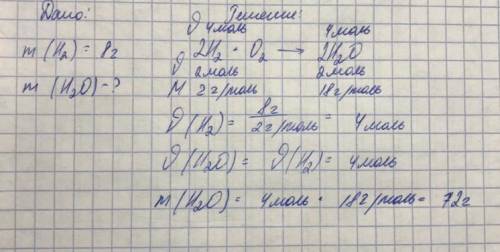 Дано:
Решение:
m (H₂) = 8г
m (H₂O) - ?
ϑ 4моль 4моль
2H₂ + O₂ → 2H₂O
ϑ 2моль 2моль
M 2г/моль 18г/моль
ϑ (H₂) = 8г / 2г/моль = 4моль
ϑ (H₂O) = ϑ (H₂) = 4моль
m (H₂O) = 4моль · 18г/моль = 72г